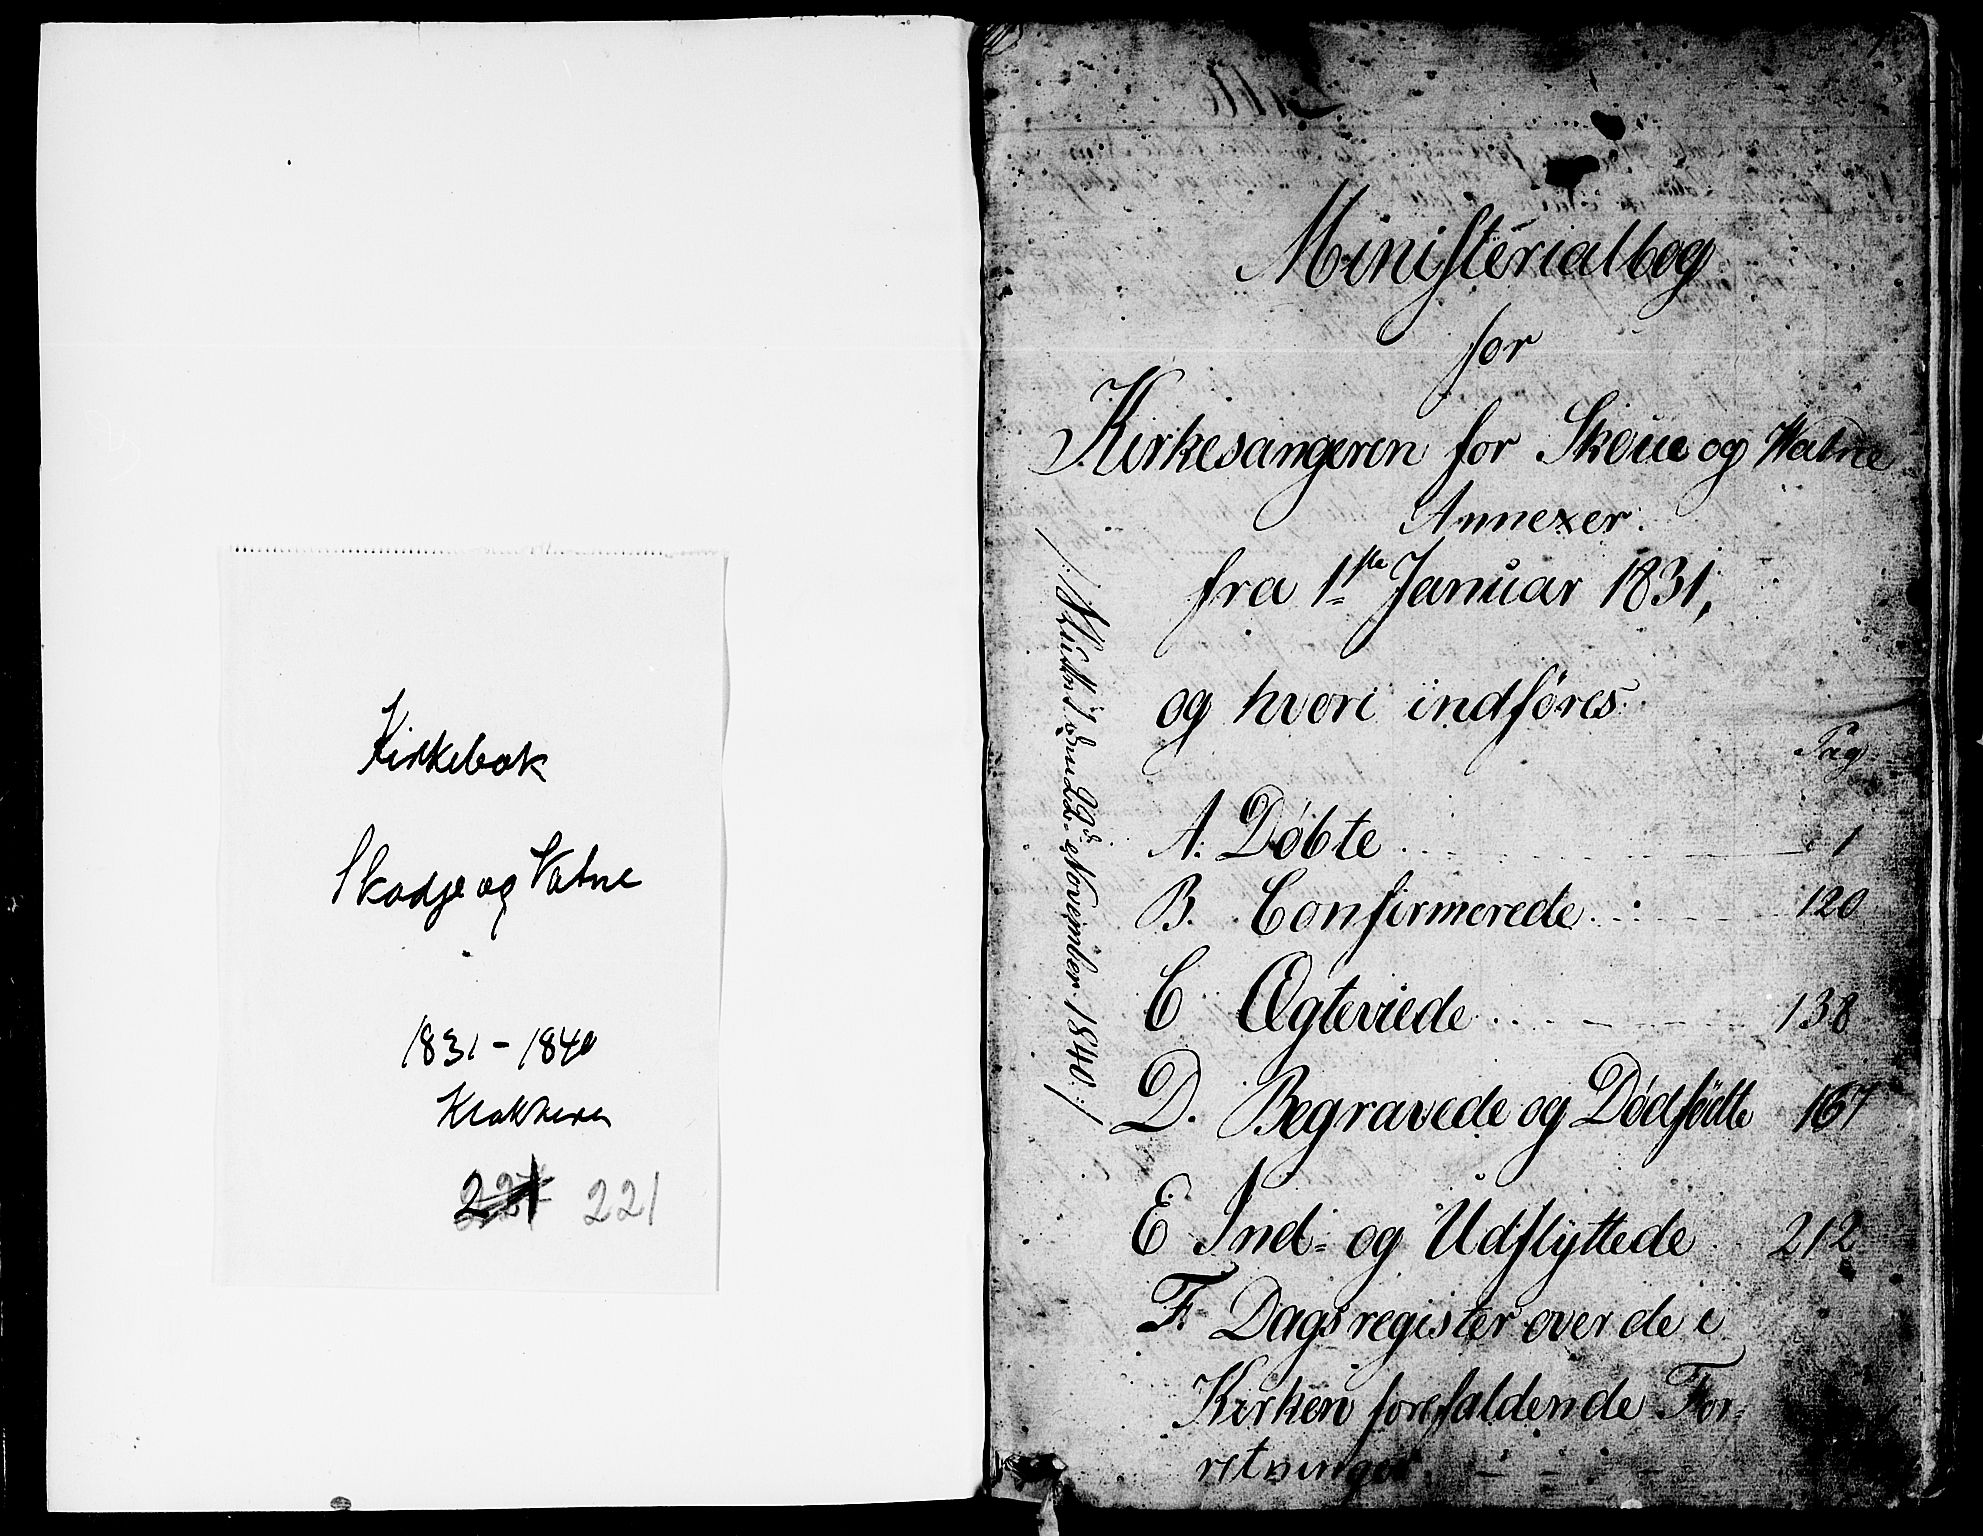 Kirkebok
Skodje og Vatne
1831-1840
Klokkeren
221 221
Ministerialbog
for
Kirkesangeren for Skoue og Watne
Annexer.
fra 1ste Januar 1831,
og hvori indføres:
Pag.
A. Døbte 1
B. Confirmerede 120
C Ægteviede 138
D. Begravede og Dødfödte 167
E Ind- og Udflyttede 212
F. Dagsregister over de i
Kirken forefaldende For-
retninger
/: Sluttet den 22d November 1840 :/